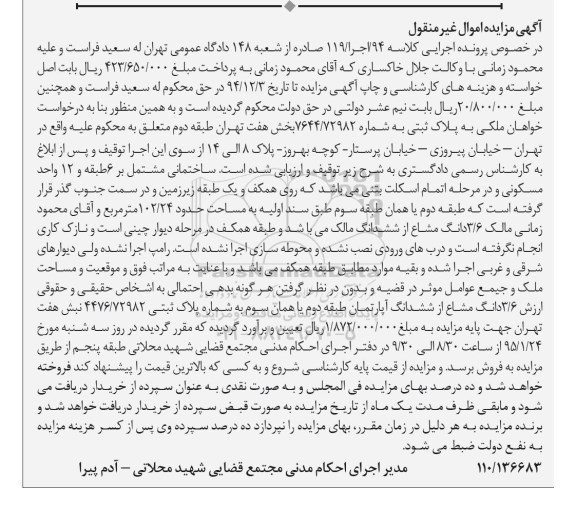 آگهی مزایده اموال غیر منقول
در خصوص پرونده اجرایی کلاسه ۹۴/اجرا/۱۱۹ صادره از شعبه ۱۴۸ دادگاه عمومی تهران له سعید فراست و علیه
محمود زمانی با وکالت جلال خاکساری که آقای محمود زمانی به پرداخت مبلغ ۴۲۳/۶۵۰/۰۰۰ ریال بابت اصل
خواسته و هزینه های کارشناسی و چاپ آگهی مزایده تا تاریخ ۹۴/۱۲/۳ در حق محکوم له سعید فراست و همچنین
مبلغ ۲۰/۸۰۰/۰۰۰ریال بابت نیم عشر دولتی در حق دولت محکوم گردیده است و به همین منظور بنا به درخواست
خواهان ملکی به پلاک ثبتی به شماره ۷۶۴۴/۷۲۹۸۲بخش هفت تهران طبقه دوم متعلق به محکوم علیه واقع در
تهران – خیابان پیروزی – خیابان پرستار- کوچه بهروز- پلاک ۸ الی ۱۴ از سوی این اجرا توقیف و پس از ابلاغ
به کارشناس رسمی دادگستری به شرح زیر توقیف و ارزیابی شده است. ساختمانی مشتمل بر ۶طبقه و ۱۲ واحد
مسکونی و در مرحله اتمام اسکلت بتنی می باشد که روی همکف و یک طبقه زیرزمین و در سمت جنوب گذر قرار
گرفته است که طبقه دوم یا همان طبقه سوم طبق سند اولیه به مساحت حدود ۱۰۲/۲۴مترمربع و آقای محمود
زمانی مالک ۳/۶دانگ مشاع از ششدانگ مالک می با شد و طبقه همکف در مرحله دیوار چینی است و نازک کاری
انجام نگرفته است و درب های ورودی نصب نشده و محوطه سازی اجرا نشده است. رامپ اجرا نشده ولی دیوارهای
شرقی و غربی اجرا شده و بقیه موارد مطابق طبقه همکف می باشد و با عنایت به مراتب فوق و موقعیت و مساحت
ملک و جمیع عوامل موثر در قضیه و بدون در نظر گرفتن هر گونه بدهی احتمالی به اشخاص حقیقی و حقوقی
ارزش ۳/۶دانگ مشاع از ششدانگ آپارتمان طبقه دوم یا همان سوم به شماره پلاک ثبتی ۴۴۷۶/۷۲۹۸۲ نبش هفت
تهران جهت پایه مزایده به مبلغ ۱/۸۷۲/۰۰۰/۰۰۰ریال تعیین و برآورد گردیده که مقرر گردیده در روز سه شنبه مورخ
۹۵/۱/۲۴ از ساعت ۸/۳۰ الی ۹/۳۰ در دفتر اجرای احکام مدنی مجتمع قضایی شهید محلاتی طبقه پنجم از طریق
مزایده به فروش برسد. و مزایده از قیمت پایه کارشناسی شروع و به کسی که بالاترین قیمت را پیشنهاد کند فروخته
خواهد شد و ده درصد بهای مزایده فی المجلس و به صورت نقدی به عنوان سپرده از خریدار دریافت می
شود و مابقی ظرف مدت یک ماه از تاریخ مزایده به صورت قبض سپرده از خریدار دریافت خواهد شد و
برنده مزایده به هر دلیل در زمان مقرر، بهای مزایده را نپردازد ده درصد سپرده وی پس از کسر هزینه مزایده
به نفع دولت ضبط می شود.
۱۱۰/۱۳۶۶۸۳ مدیر اجرای احکام مدنی مجتمع قضایی شهید محلاتی – آدم پیرا